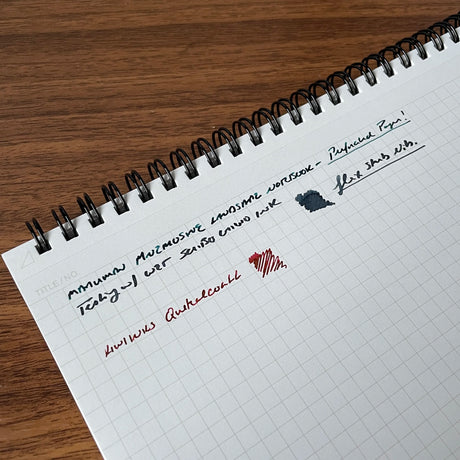 TITLE/NO.
MARUMAN MNEMOSYNE LANDSCAPE NOTEBOOK - Perforated Pages!
Testing w/ WET INK flex stub nib.
KIWI INKS Quetzalcoatl